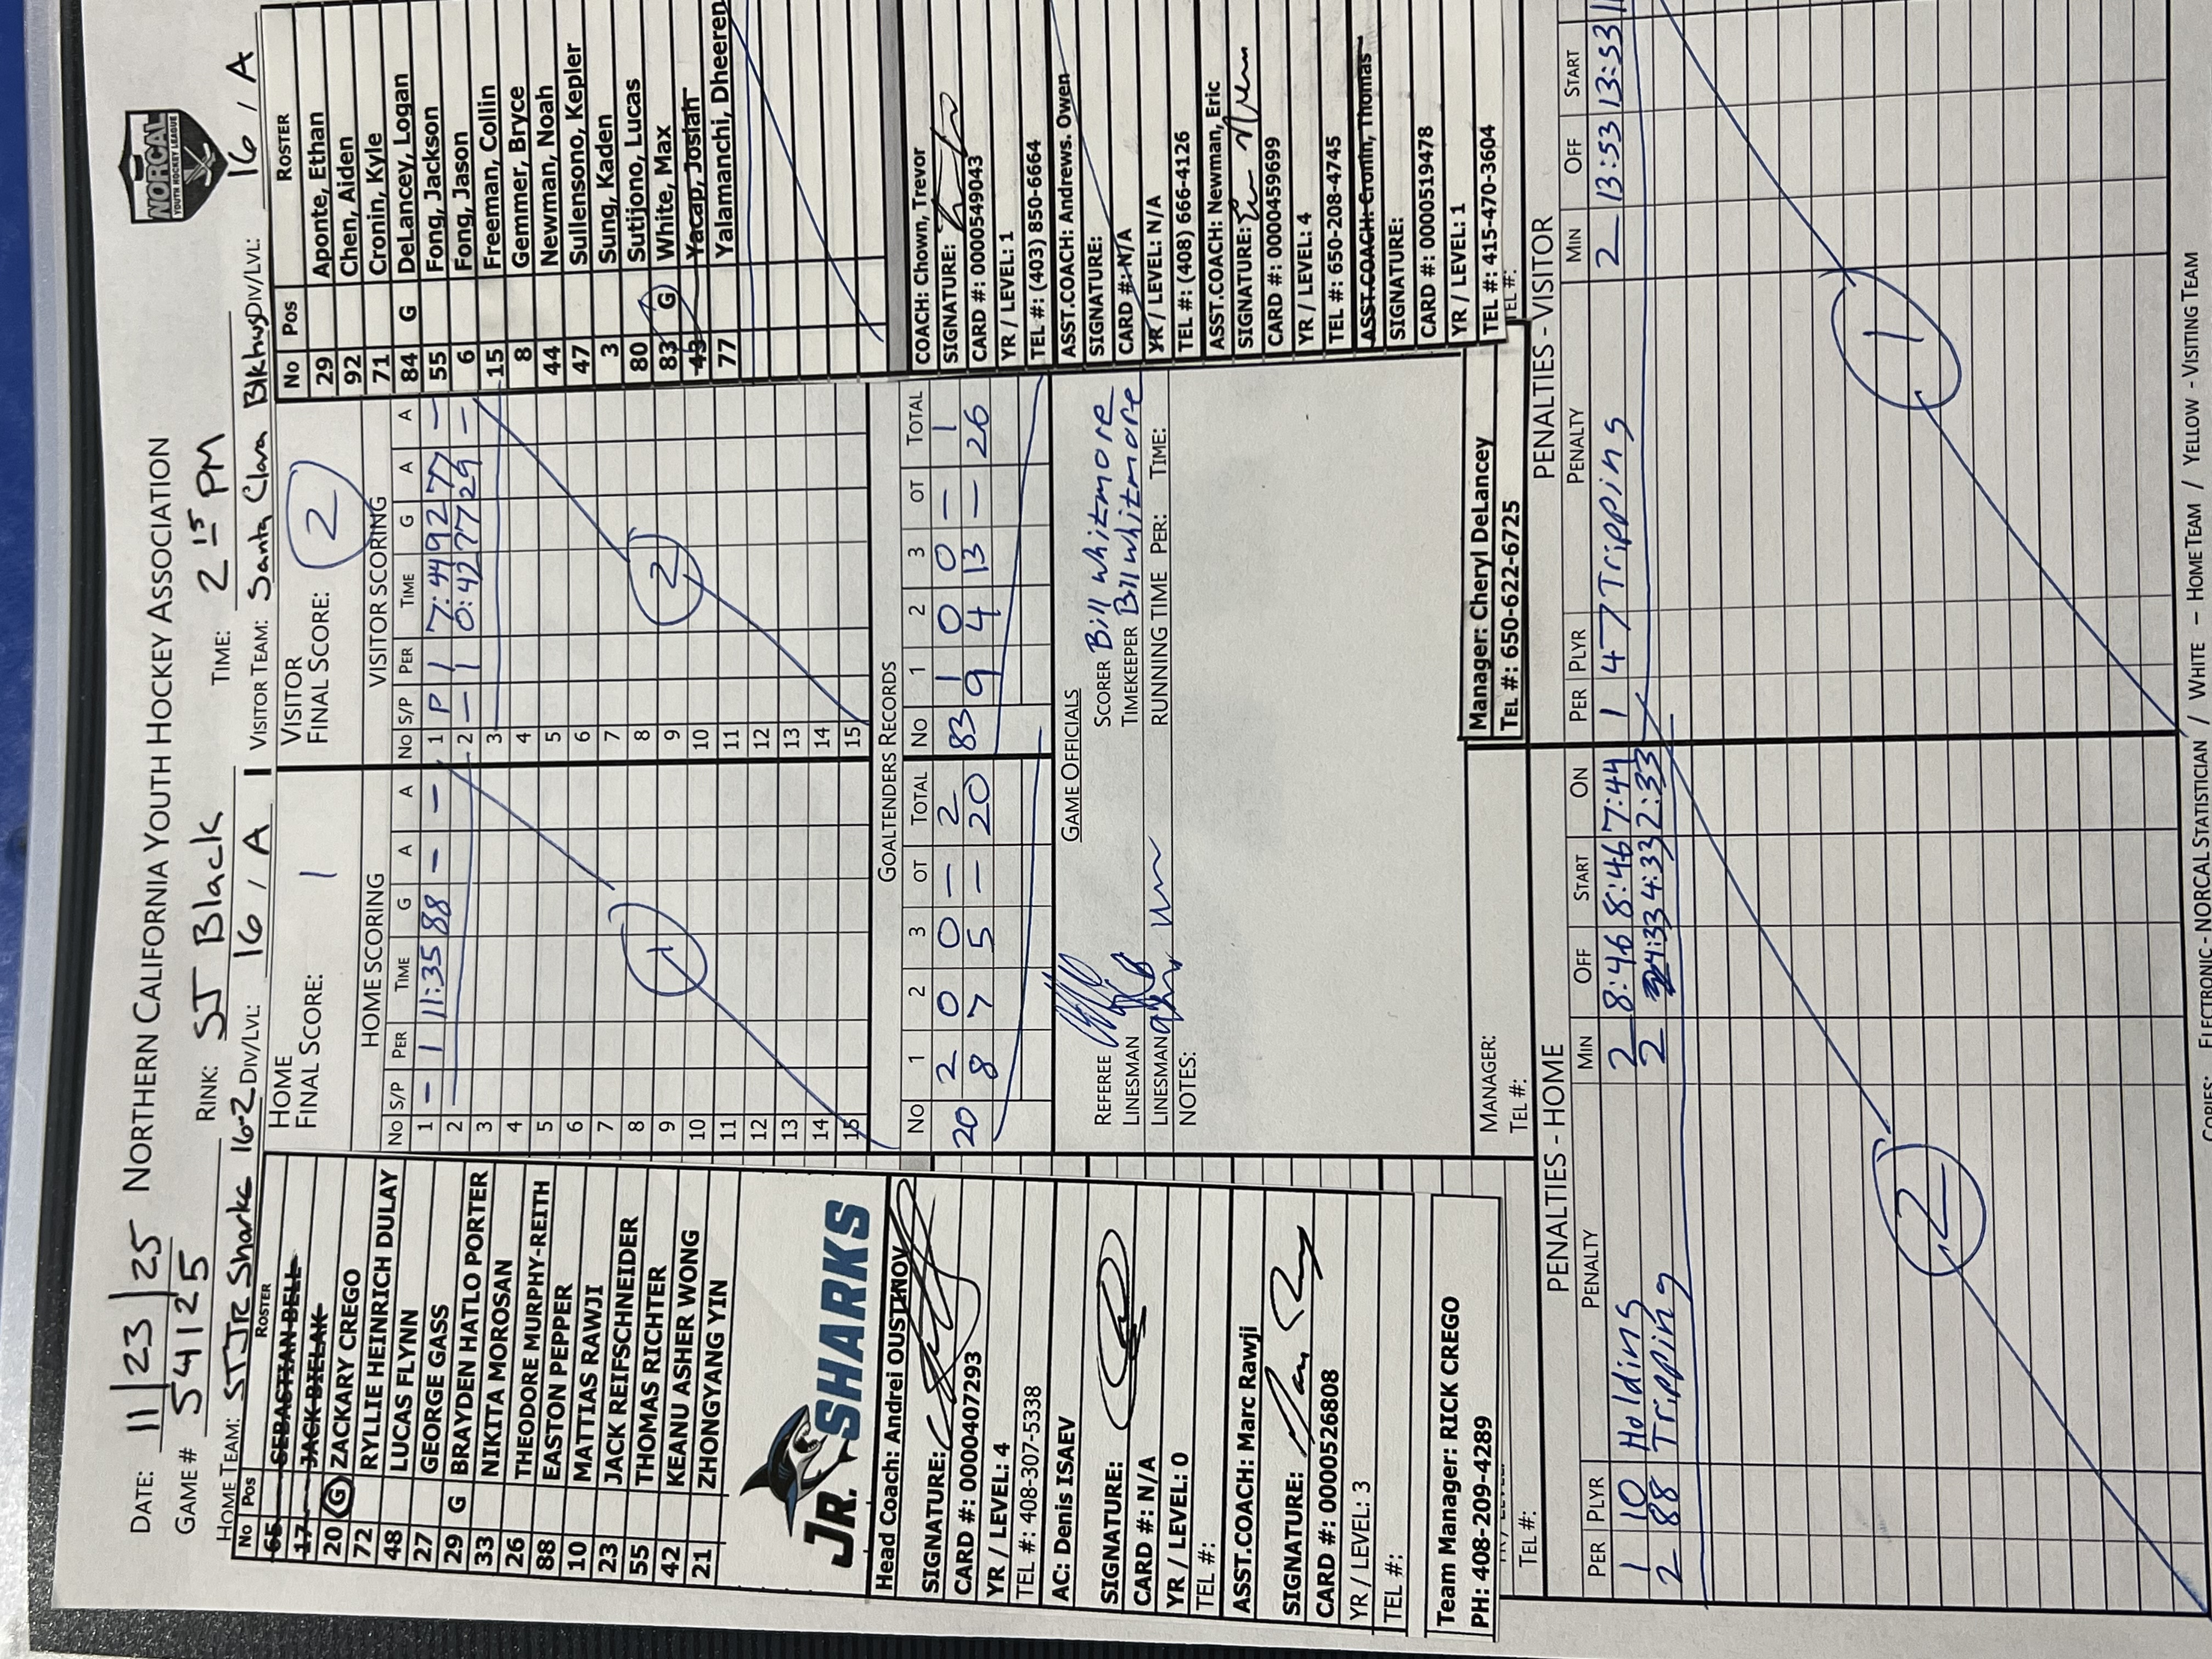 DATE: 11/23/25 NORTHERN CALIFORNIA YOUTH HOCKEY ASSOCIATION
NORCAL
YOUTH HOCKEY LEAGUE
GAME # 54125 RINK: SJ Black TIME: 2 15 PM
HOME TEAM: SJ Jr Sharks 16-2 DIV/LVL: 16 / A VISITOR TEAM: Santa Clara Blkhwgs DIV/LVL: 16 / A
No Pos ROSTER
65 SEBASTIAN BELL
17 JACK BIELAK
20 G ZACKARY CREGO
72 RYLLIE HEINRICH DULAY
48 LUCAS FLYNN
27 GEORGE GASS
29 G BRAYDEN HATLO PORTER
33 NIKITA MOROSAN
26 THEODORE MURPHY-REITH
88 EASTON PEPPER
10 MATTIAS RAWJI
23 JACK REIFSCHNEIDER
55 THOMAS RICHTER
42 KEANU ASHER WONG
21 ZHONGYANG YIN
JR. SHARKS
Head Coach: Andrei OUSTINOV
SIGNATURE:
CARD #: 0000407293
YR / LEVEL: 4
TEL #: 408-307-5338
AC: Denis ISAEV
SIGNATURE:
CARD #: N/A
YR / LEVEL: 0
TEL #:
ASST.COACH: Marc Rawji
SIGNATURE:
CARD #: 0000526808
YR / LEVEL: 3
TEL #:
Team Manager: RICK CREGO
PH: 408-209-4289
TEL #:
HOME
FINAL SCORE: 1
HOME SCORING
No S/P PER TIME G A A
1 – 1 11:35 88 – –
2
3
4
5
6
7
8
9
10
11
12
13
14
15
1
VISITOR
FINAL SCORE: 2
VISITOR SCORING
No S/P PER TIME G A A
1 P 1 7:44 92 77 –
2 – 1 0:42 77 29 –
3
4
5
6
7
8
9
10
11
12
13
14
15
2
GOALTENDERS RECORDS
No 1 2 3 OT TOTAL No 1 2 3 OT TOTAL
20 2 0 0 – 2 83 1 0 0 – 1
8 7 5 – 20 9 4 13 – 26
GAME OFFICIALS
REFEREE SCORER Bill Whitmore
LINESMAN TIMEKEEPER Bill Whitmore
LINESMAN RUNNING TIME PER: TIME:
NOTES:
MANAGER:
TEL #:
Manager: Cheryl DeLancey
TEL #: 650-622-6725
No Pos ROSTER
29 Aponte, Ethan
92 Chen, Aiden
71 Cronin, Kyle
84 G DeLancey, Logan
55 Fong, Jackson
6 Fong, Jason
15 Freeman, Collin
8 Gemmer, Bryce
44 Newman, Noah
47 Sullensono, Kepler
3 Sung, Kaden
80 Sutijono, Lucas
83 G White, Max
43 Yacap, Josiah
77 Yalamanchi, Dheeren
COACH: Chown, Trevor
SIGNATURE:
CARD #: 0000549043
YR / LEVEL: 1
TEL #: (403) 850-6664
ASST.COACH: Andrews. Owen
SIGNATURE:
CARD #: N/A
YR / LEVEL: N/A
TEL #: (408) 666-4126
ASST.COACH: Newman, Eric
SIGNATURE:
CARD #: 0000459699
YR / LEVEL: 4
TEL #: 650-208-4745
ASST.COACH: Cronin, Thomas
SIGNATURE:
CARD #: 0000519478
YR / LEVEL: 1
TEL #: 415-470-3604
TEL #:
PENALTIES - HOME
PER PLYR PENALTY MIN OFF START ON
1 10 Holding 2 8:46 8:46 7:44
2 88 Tripping 2 4:33 4:33 2:33
2
PENALTIES - VISITOR
PER PLYR PENALTY MIN OFF START
1 47 Tripping 2 13:53 13:53 11
1
COPIES: ELECTRONIC - NORCAL STATISTICIAN / WHITE – HOME TEAM / YELLOW - VISITING TEAM